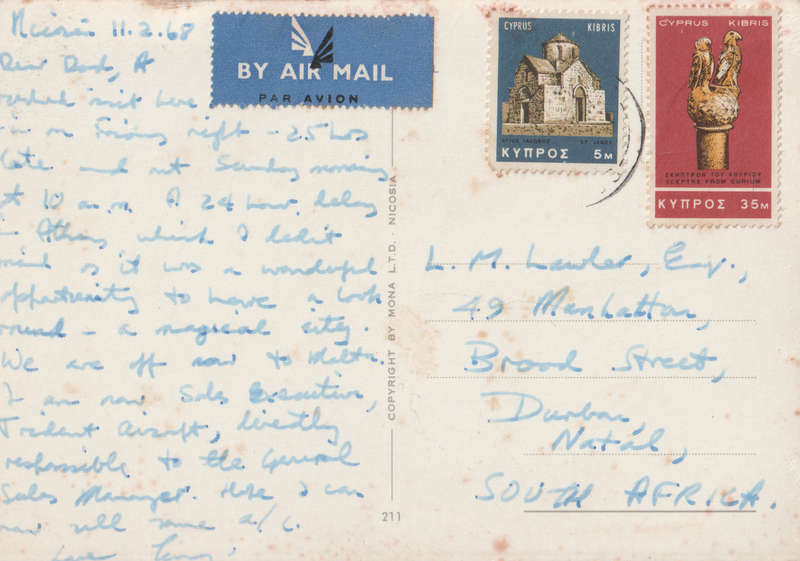 Nicosia 11.2.68
Dear Dad,
visit here
on Friday night - 25 hrs
late and not Sunday morning
at 10 a.m. A 24 hour delay
in Athens which I didn't
mind as it was a wonderful
opportunity to have a look
round - a magical city.
We are off now to Malta.
I am now Sales Executive,
Trident Aircraft, directly
responsible to the General
Sales Manager. Hope I can
now sell some a/c.
Love
BY AIR MAIL
PAR AVION
COPYRIGHT BY MONA L.T.D. - NICOSIA
211
CYPRUS KIBRIS
ΚΥΠΡΟΣ 5M
CYPRUS KIBRIS
ΣΚΗΠΤΡΟΝ ΤΟΥ ΚΟΥΡΙΟΥ
SCEPTRE FROM CURIUM
ΚΥΠΡΟΣ 35M
L. M. Lawler, Esq.,
49 Manhattan,
Broad Street,
Durban,
Natal,
SOUTH AFRICA.